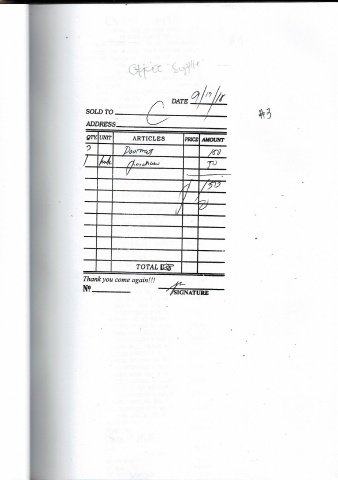 Office Supplie
DATE 9/17/18
SOLD TO C
#3
ADDRESS
QTY. UNIT ARTICLES PRICE AMOUNT
Doormat 150
1
150
TOTAL
Thank you come again!!!
Nº
SIGNATURE